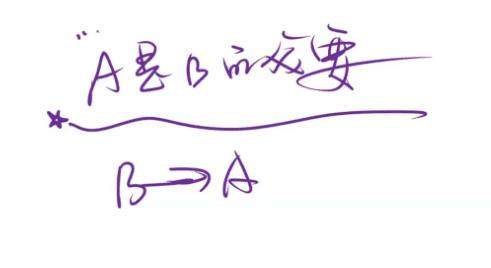 A是B的必要
B→A